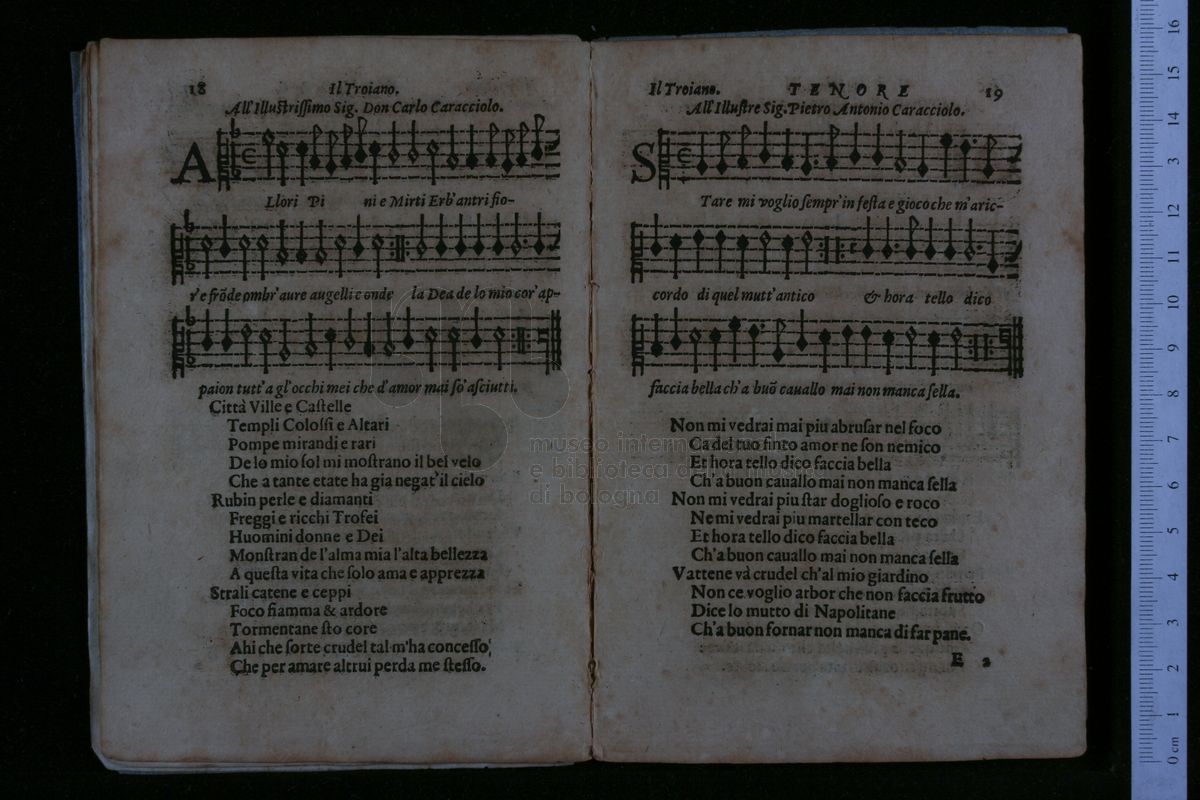 18
Il Troiano.
All' Illustrissimo Sig. Don Carlo Caracciolo.
A
Llori Pi ni e Mirti Erb'antri fio-
r'e frõde ombr'aure augelli e onde la Dea de lo mio cor'ap-
paion tutt'a gl'occhi mei che d'amor mai sõ asciutti.
Città Ville e Castelle
Templi Colossi e Altari
Pompe mirandi e rari
De lo mio sol mi mostrano il bel velo
Che a tante etate ha gia negat'il cielo
Rubin perle e diamanti
Freggi e ricchi Trofei
Huomini donne e Dei
Monstran de l'alma mia l'alta bellezza
A questa vita che solo ama e apprezza
Strali catene e ceppi
Foco fiamma & ardore
Tormentane sto core
Ahi che sorte crudel tal m'ha concesso
Che per amare altrui perda me stesso.
Il Troiano. TENORE 19
All' Illustre Sig. Pietro Antonio Caracciolo.
S
Tare mi voglio sempr'in festa e gioco che m'aric-
cordo di quel mutt'antico & hora tello dico
faccia bella ch'a buõ cauallo mai non manca sella.
Non mi vedrai mai piu abrusar nel foco
Ca del tuo finto amor ne son nemico
Et hora tello dico faccia bella
Ch'a buon cauallo mai non manca sella
Non mi vedrai piu star doglioso e roco
Ne mi vedrai piu martellar con teco
Et hora tello dico faccia bella
Ch'a buon cauallo mai non manca sella
Vattene và crudel ch'al mio giardino
Non ce voglio arbor che non faccia frutto
Dice lo mutto di Napolitane
Ch'a buon fornar non manca di far pane.
E 2
museo internazionale
e biblioteca della musica
di bologna
0 cm 1 2 3 4 5 6 7 8 9 10 11 12 13 14 15 16